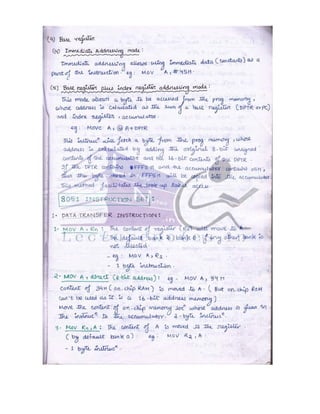 (4) Base register
(iv) Immediate Addressing mode :
Immediate addressing allows using immediate data (constants) as a
part of the instruction eg: MOV A, #45H.
(v) Base register plus index register addressing mode :
This mode allows a byte to be accessed from the prog memory,
whose address is calculated as the sum of a base register (DPTR or PC)
and index register, accumulator
eg: MOVC A, @ A+DPTR
This instrucn will fetch a byte from the prog memory, whose
address is calculated by adding the original 8-bit unsigned
contents of the accumulator and the 16-bit contents of the DPTR.
If the DPTR contains and the accumulator contains
then the byte stored in will be copied into the accumulator.
This method facilitates the look up table access.
8051 INSTRUCTION SET :
1:- DATA TRANSFER INSTRUCTIONS :
1- MOV A, Rn : The content of register (Rn) will move to A.
The default bank is bank 0 if any other bank is
not selected.
- eg: MOV A, R2.
- 1 byte instruction.
2- MOV A, direct (8-bit address) : eg. MOV A, 34H
Content of 34H (on. chip RAM) is moved to A. (But on. chip ROM
can't be used as it is a 16-bit address memory)
Move the content of on. chip memory locn whose address is given in
the instrucn to the accumulator. 2-byte instrucn.
3- MOV Rn, A : the content of A is moved to the register
(by default bank 0) eg: MOV R2, A.
- 1 byte instrucn.